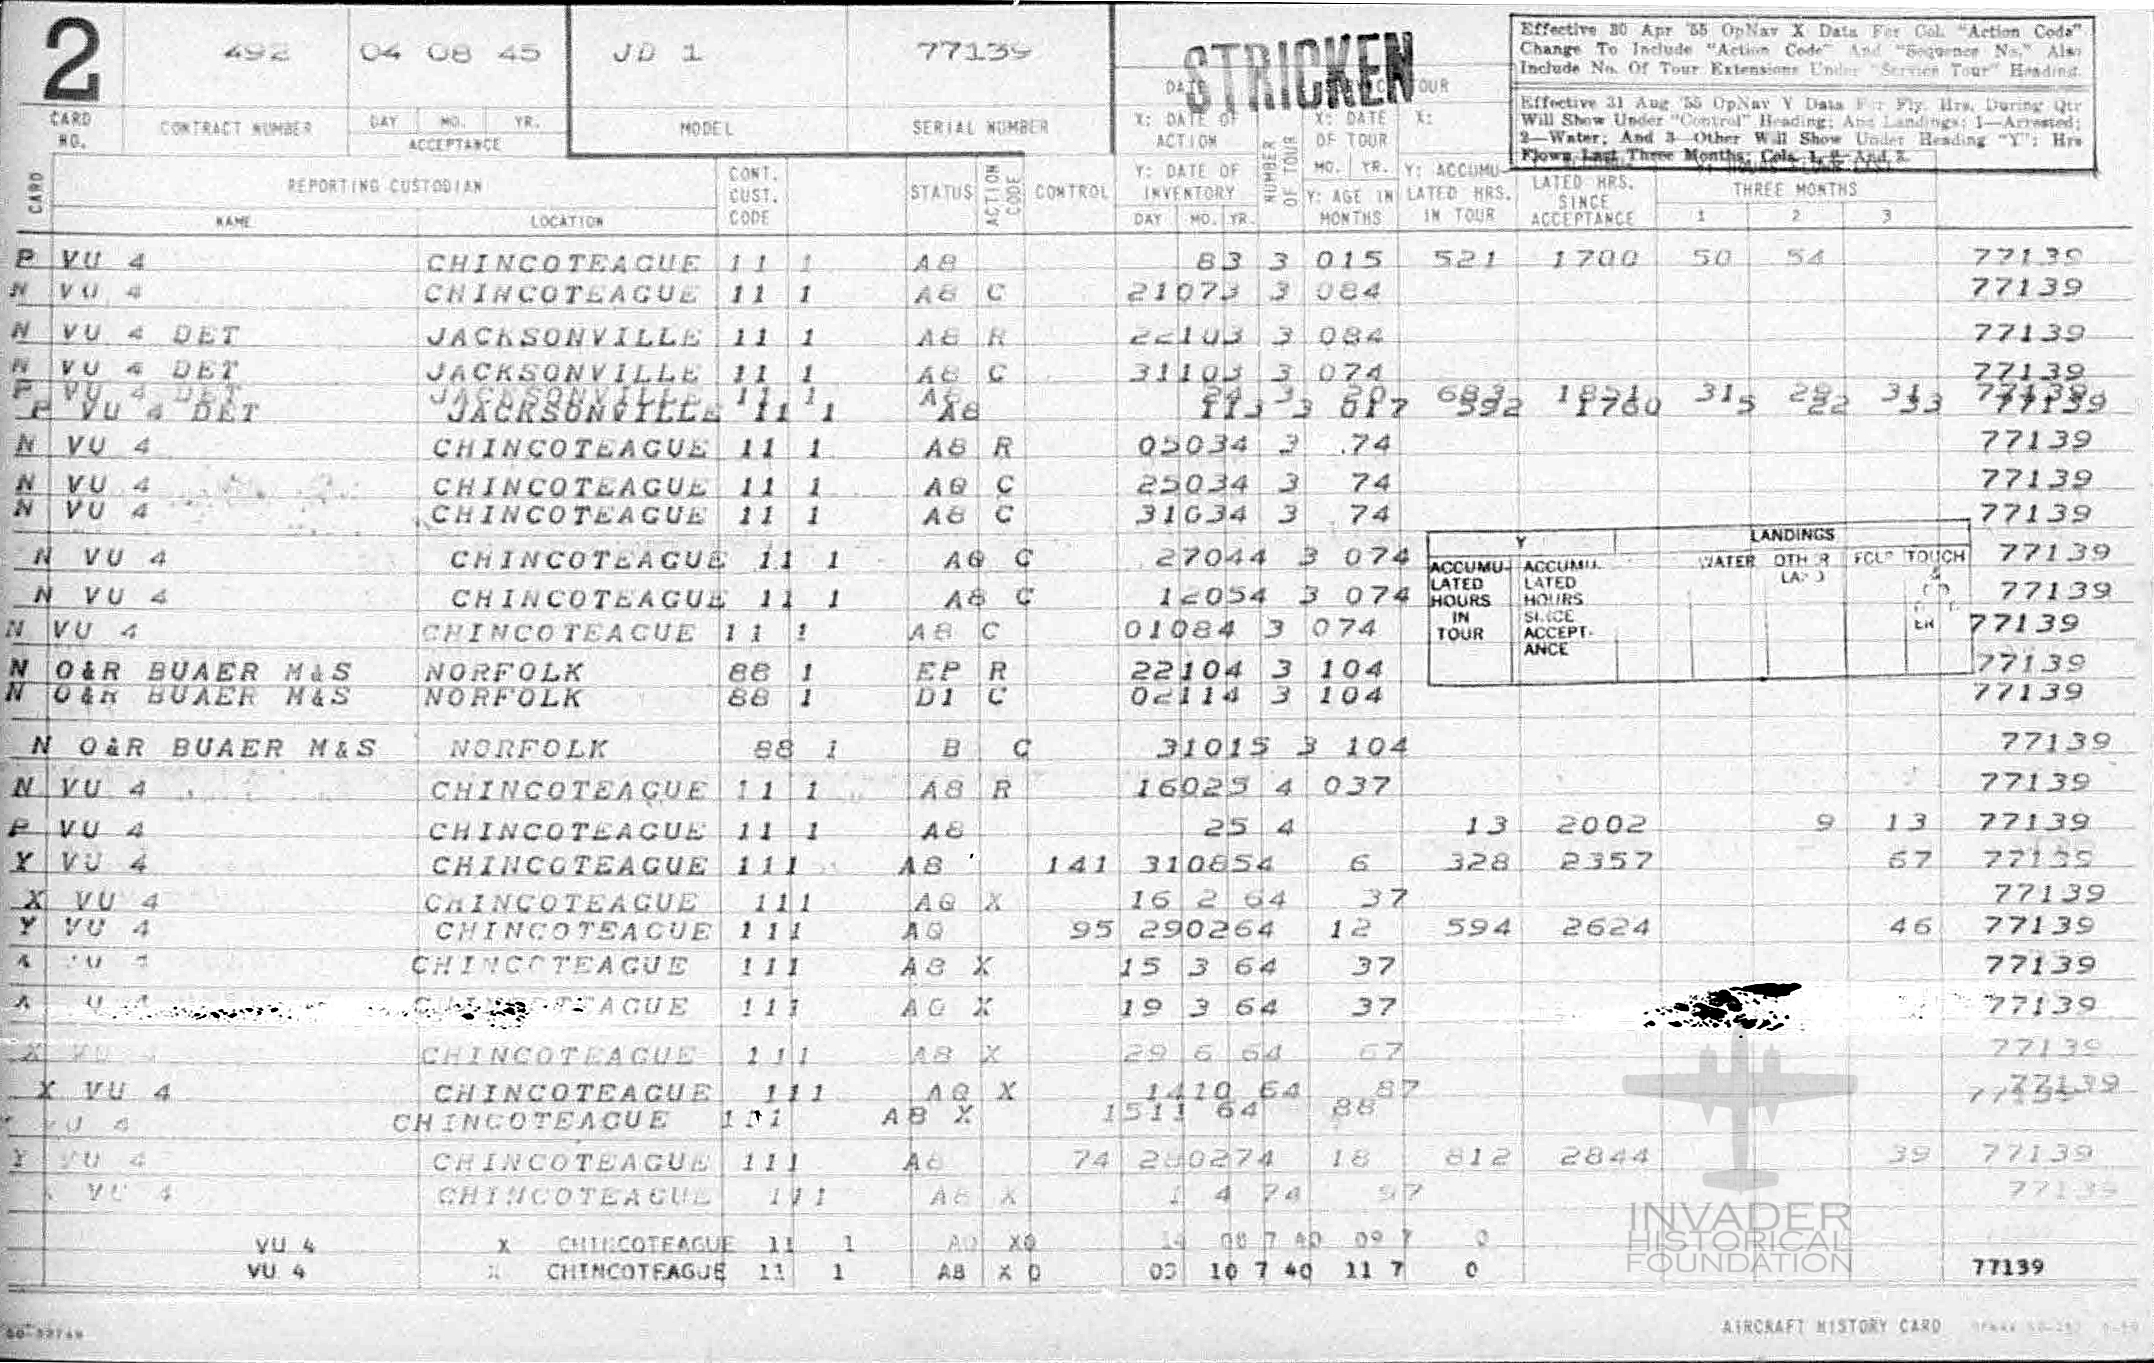 2
CARD NO.
492
CONTRACT NUMBER
04 08 45
DAY MO. YR.
ACCEPTANCE
JD 1
MODEL
77139
SERIAL NUMBER
STRICKEN
Effective 30 Apr '55 OpNav X Data For Col. "Action Code"
Change To Include "Action Code" And "Sequence No." Also
Include No. Of Tour Extensions Under "Service Tour" Heading.
Effective 31 Aug '55 OpNav Y Data For Fly. Hrs. During Qtr
Will Show Under "Control" Heading; And Landings; 1—Arrested;
2—Water; And 3—Other Will Show Under Heading "Y": Hrs
Flown Last Three Months; Cols. 1, 2 And 3.
CARD
REPORTING CUSTODIAN
NAME
LOCATION
CONT. CUST. CODE
STATUS
ACTION CODE
CONTROL
X: DATE OF ACTION
Y: DATE OF INVENTORY
DAY MO. YR.
NUMBER OF TOUR
X: DATE OF TOUR
MO. YR.
Y: AGE IN MONTHS
X:
Y: ACCUMULATED HRS. IN TOUR
LATED HRS. SINCE ACCEPTANCE
THREE MONTHS
1 2 3
P VU 4 CHINCOTEAGUE 11 1 A8 83 3 015 521 1700 50 54 77139
N VU 4 CHINCOTEAGUE 11 1 A8 C 21073 3 084 77139
N VU 4 DET JACKSONVILLE 11 1 A8 R 22103 3 084 77139
N VU 4 DET JACKSONVILLE 11 1 A8 C 31103 3 074 77139
P VU 4 DET JACKSONVILLE 11 1 A8 113 3 017 592 1760 77139
N VU 4 CHINCOTEAGUE 11 1 A8 R 05034 3 .74 77139
N VU 4 CHINCOTEAGUE 11 1 A0 C 25034 3 74 77139
N VU 4 CHINCOTEAGUE 11 1 A8 C 31034 3 74 77139
Y LANDINGS
ACCUMULATED HOURS IN TOUR
ACCUMULATED HOURS SINCE ACCEPTANCE
WATER OTHER LAND FCLP TOUCH
N VU 4 CHINCOTEAGUE 11 1 A0 C 27044 3 074 77139
N VU 4 CHINCOTEAGUE 11 1 A8 C 12054 3 074 77139
N VU 4 CHINCOTEAGUE 11 1 A8 C 01084 3 074 77139
N O&R BUAER M&S NORFOLK 88 1 EP R 22104 3 104 77139
N O&R BUAER M&S NORFOLK 88 1 D1 C 02114 3 104 77139
N O&R BUAER M&S NORFOLK 88 1 B C 31015 3 104 77139
N VU 4 CHINCOTEAGUE 11 1 A8 R 16025 4 037 77139
P VU 4 CHINCOTEAGUE 11 1 A8 25 4 13 2002 9 13 77139
Y VU 4 CHINCOTEAGUE 111 A8 141 310854 6 328 2357 67 77139
X VU 4 CHINCOTEAGUE 111 A0 X 16 2 64 37 77139
Y VU 4 CHINCOTEAGUE 111 A0 95 290264 12 594 2624 46 77139
CHINCOTEAGUE 111 A8 X 15 3 64 37 77139
CHINCOTEAGUE 111 A0 X 19 3 64 37 77139
X VU CHINCOTEAGUE 111 A8 X 29 6 64 67 77139
X VU 4 CHINCOTEAGUE 111 A0 X 1410 64 87 77139
VU 4 CHINCOTEAGUE 111 A8 X 1511 64 88
Y VU 4 CHINCOTEAGUE 111 A8 74 280274 18 812 2844 39 77139
VU 4 CHINCOTEAGUE 111 A8 X 1 4 74 97 77139
VU 4 X CHINCOTEAGUE 11 1 A0 X0 14 08 7 40 09 7 0
VU 4 X CHINCOTEAGUE 11 1 A8 X 0 10 7 40 11 7 0 77139
INVADER
HISTORICAL
FOUNDATION
AIRCRAFT HISTORY CARD